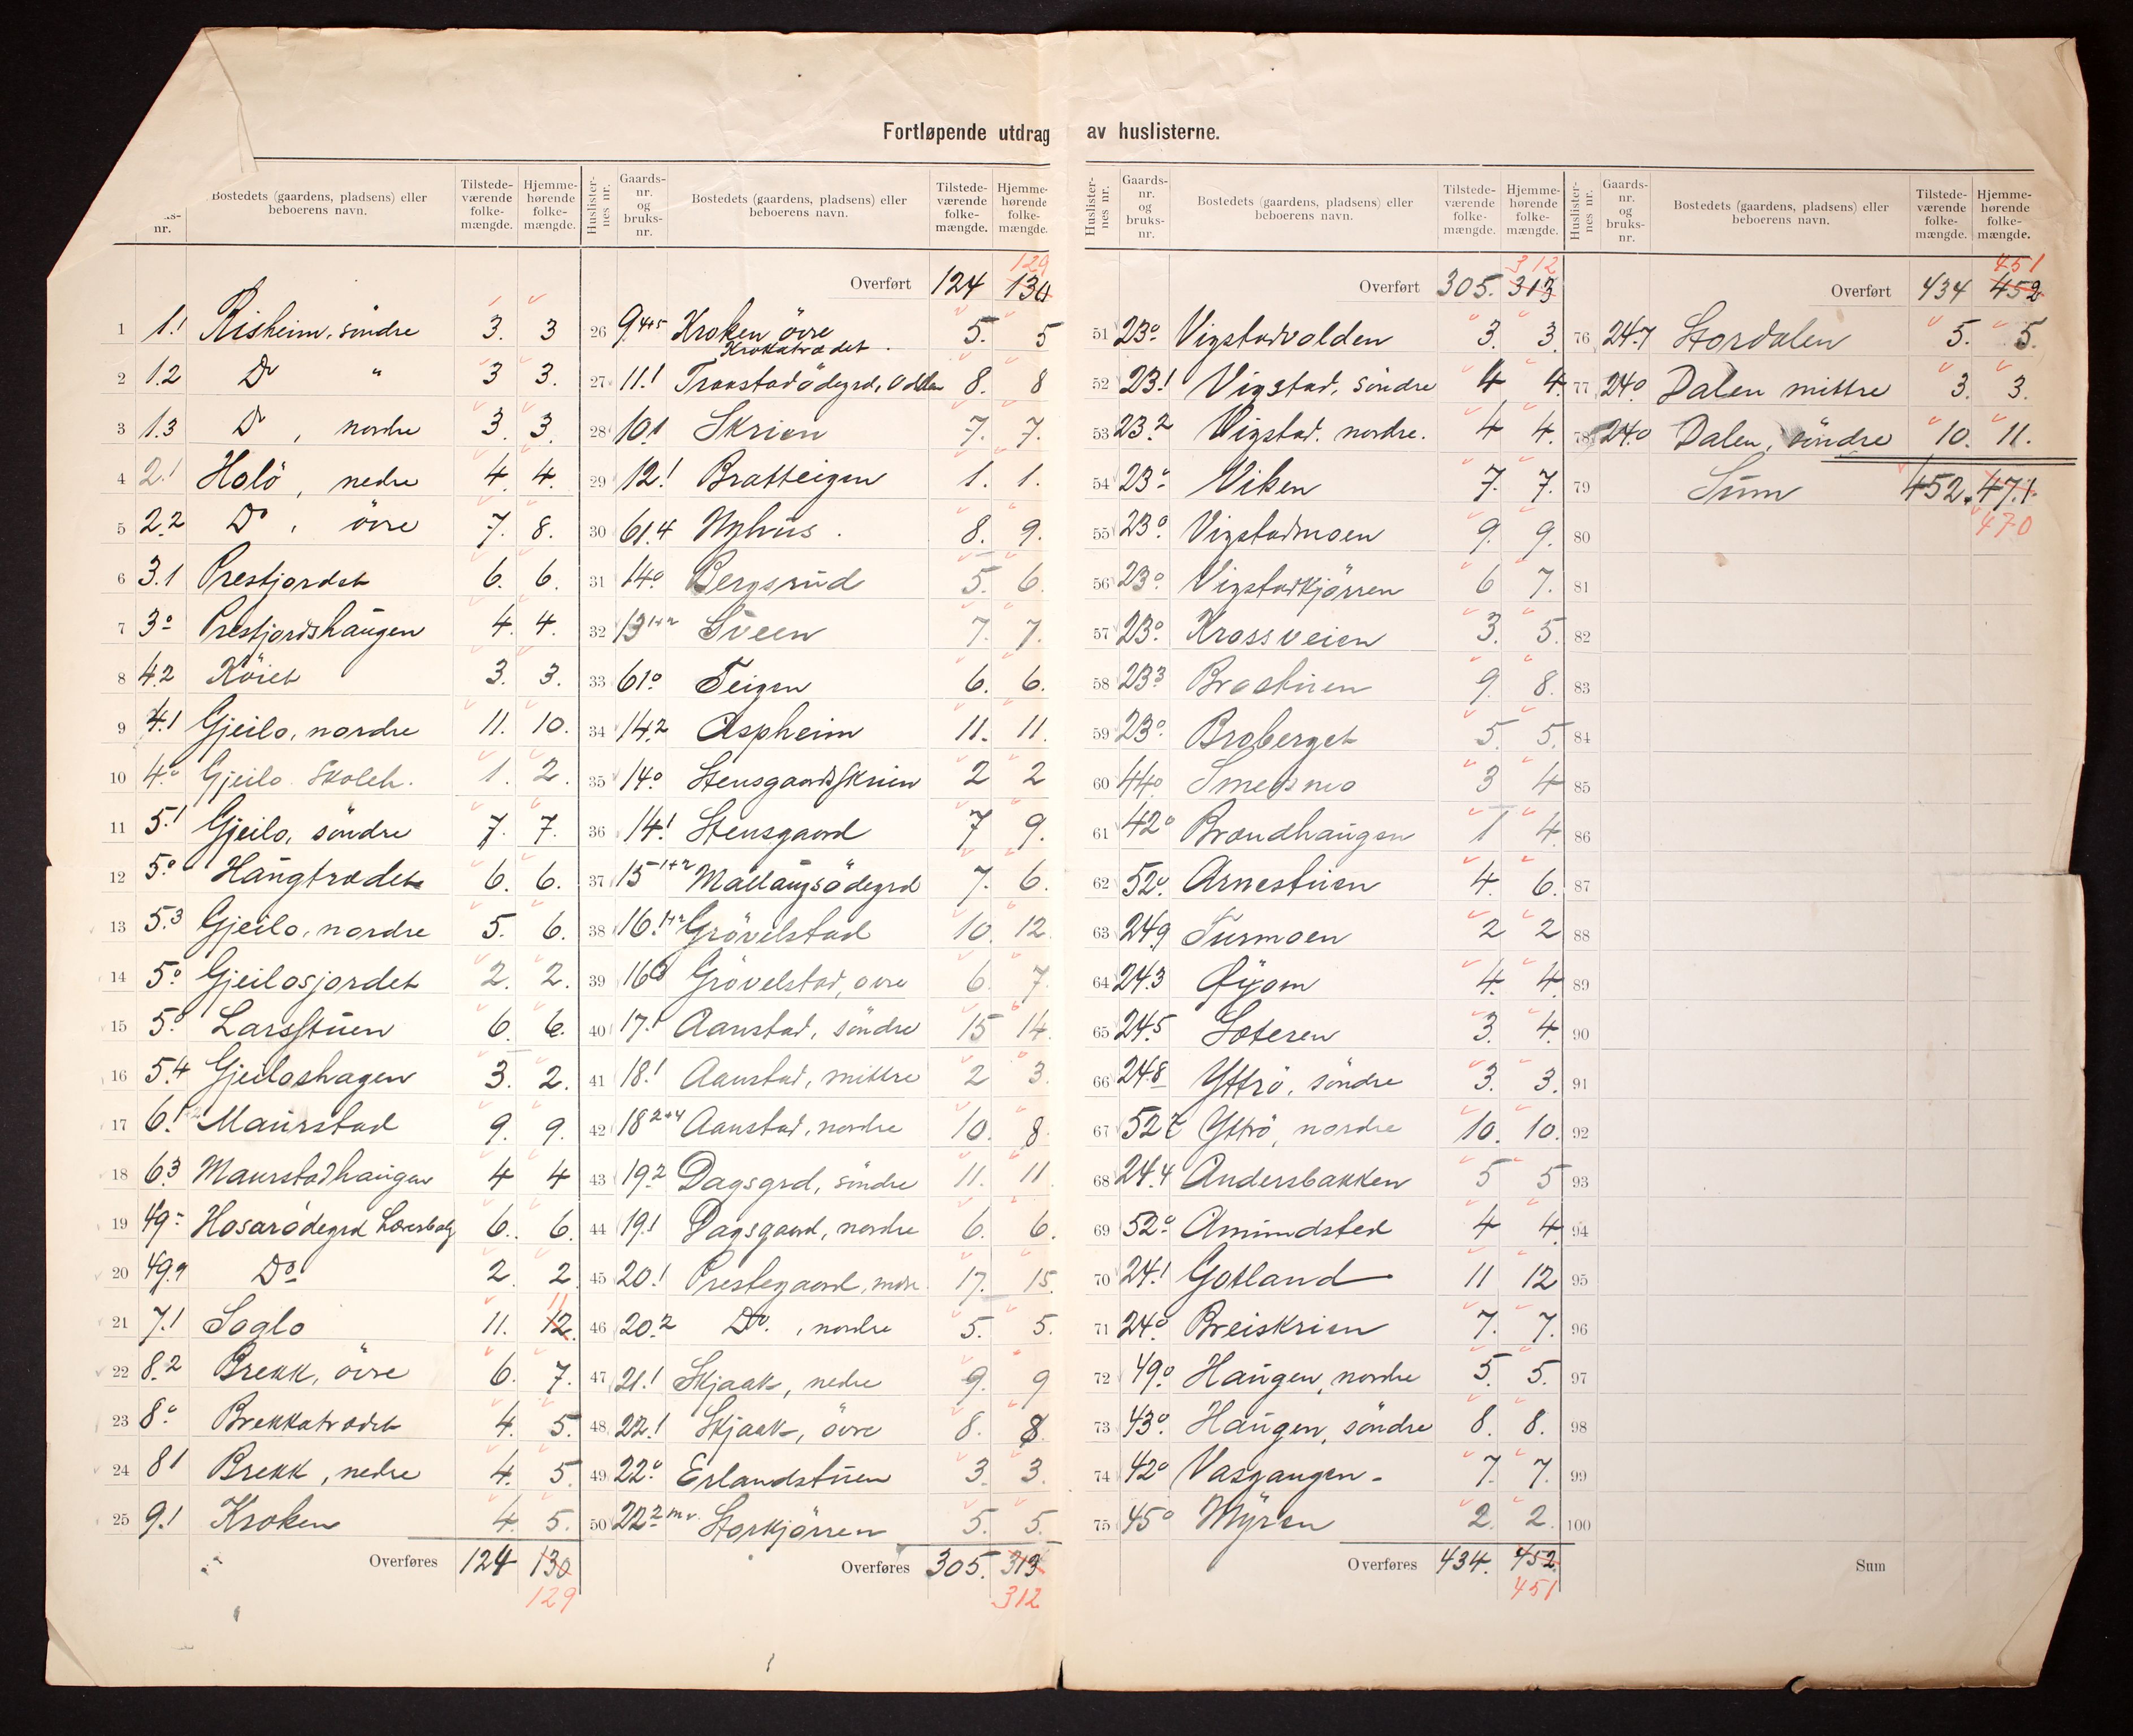 Fortløpende utdrag av huslisterne.
nr. Bostedets (gaardens, pladsens) eller beboerens navn. Tilstede-værende folke-mængde. Hjemme-hørende folke-mængde.
1 1.1 Risheim, söndre 3. 3
2 1.2 Do " 3 3.
3 1.3 Do, nordre 3. 3.
4 2.1 Holö, nedre 4. 4.
5 2.2 Do, övre 7. 8.
6 3.1 Prestjordet 6. 6.
7 3.0 Prestjordshaugen 4. 4.
8 4.2 Röiet 3. 3.
9 4.1 Gjeilo, nordre 11. 10.
10 4.0 Gjeilo Skoleh. 1. 2.
11 5.1 Gjeilo, söndre 7. 7.
12 5.0 Haugtrædet 6. 6.
13 5.3 Gjeilo, nordre 5. 6.
14 5.0 Gjeilosjordet 2. 2.
15 5.0 Larsstuen 6. 6.
16 5.4 Gjeiloshagen 3. 2.
17 6.1 Maurstad 9. 9.
18 6.3 Maurstadhaugen 4 4
19 49.- Hosarödegrd 6. 6.
20 49.9 Do 2. 2
21 7.1 Soglo 11. 12. 11
22 8.2 Brekk, övre 6. 7.
23 8.0 Brekkatrædet 4. 5.
24 8.1 Brekk, nedre 4. 5.
25 9.1 Kroken 4. 5.
Overføres 124 130
129
Huslister-nes nr. Gaards-nr. og bruks-nr. Bostedets (gaardens, pladsens) eller beboerens navn. Tilstede-værende folke-mængde. Hjemme-hørende folke-mængde.
129
Overført 124 130
26 9.4+5 Kroken övre 5. 5
Krokatrædet
27 11.1 8. 8
28 10.1 Skrien 7. 7.
29 12.1 Bratteigen 1. 1.
30 61.4 Nyhus. 8. 9.
31 14.0 Bergsrud 5. 6.
32 13.1+2 Sveen 7. 7.
33 61.0 Teigen 6. 6.
34 14.2 Aspheim 11. 11.
35 14.0 Stensgaardsskrien 2 2
36 14.1 Stensgaard 7 9.
37 15 1+2 Mallaugsödegrd 7. 6.
38 16.1+2 Grövelstad 10. 12.
39 16.3 Grövelstad, övre 6. 7.
40 17.1 Aanstad, söndre 15 14.
41 18.1 Aanstad, mittre 2 3.
42 18 2+4 Aanstad, nordre 10. 8.
43 19.2 Dagsgrd, söndre 11. 11
44 19.1 Dagsgaard, nordre 6. 6.
45 20.1 Prestegaard, 17. 15.
46 20.2 Do., nordre 5. 5.
47 21.1 Skjaak, nedre 9. 9
48 22.1 Skjaak, övre 8. 8.
49 22.0 Erlandstuen 3. 3.
50 22.2 m.v. Storkjörren 5. 5.
Overføres 305. 313
312
Huslister-nes nr. Gaards-nr. og bruks-nr. Bostedets (gaardens, pladsens) eller beboerens navn. Tilstede-værende folke-mængde. Hjemme-hørende folke-mængde.
312
Overført 305. 313
51 23.0 Vigstadvolden 3. 3.
52 23.1 Vigstad, söndre 4 4.
53 23.2 Vigstad. nordre. 4 4.
54 23.0 Viken 7. 7.
55 23.0 Vigstadmoen 9. 9.
56 23.0 Vigstadkjörren 6 7.
57 23.0 Krossveien 3. 5.
58 23.3 Brostuen 9. 8.
59 23.0 Broberget 5. 5.
60 44.0 Smedsmo 3 4
61 42.0 Brændhaugen 1 4.
62 52.0 Arnestuen 4. 6.
63 24.9 Turmoen 2 2
64 24.3 Öyom 4. 4.
65 24.5 Loteren 3. 4.
66 24.8 Yttrö, söndre 3. 3.
67 52.2 Yttrö, nordre 10. 10.
68 24.4 Andersbakken 5 5
69 52.0 Amundsted 4 4.
70 24.1 Gotland 11 12
71 24.0 Breiskrien 7. 7.
72 49.0 Haugen, nordre 5. 5.
73 43.0 Haugen, söndre 8. 8.
74 42.0 Vasgangen 7. 7.
75 45.0 Myren 2. 2.
Overføres 434. 452.
451
Huslister-nes nr. Gaards-nr. og bruks-nr. Bostedets (gaardens, pladsens) eller beboerens navn. Tilstede-værende folke-mængde. Hjemme-hørende folke-mængde.
451
Overført 434 452
76 24.7 Stordalen 5. 5.
77 24.0 Dalen mittre 3. 3.
78 24.0 Dalen, söndre 10. 11.
79 Sum 452. 471.
470
80
81
82
83
84
85
86
87
88
89
90
91
92
93
94
95
96
97
98
99
100
Sum